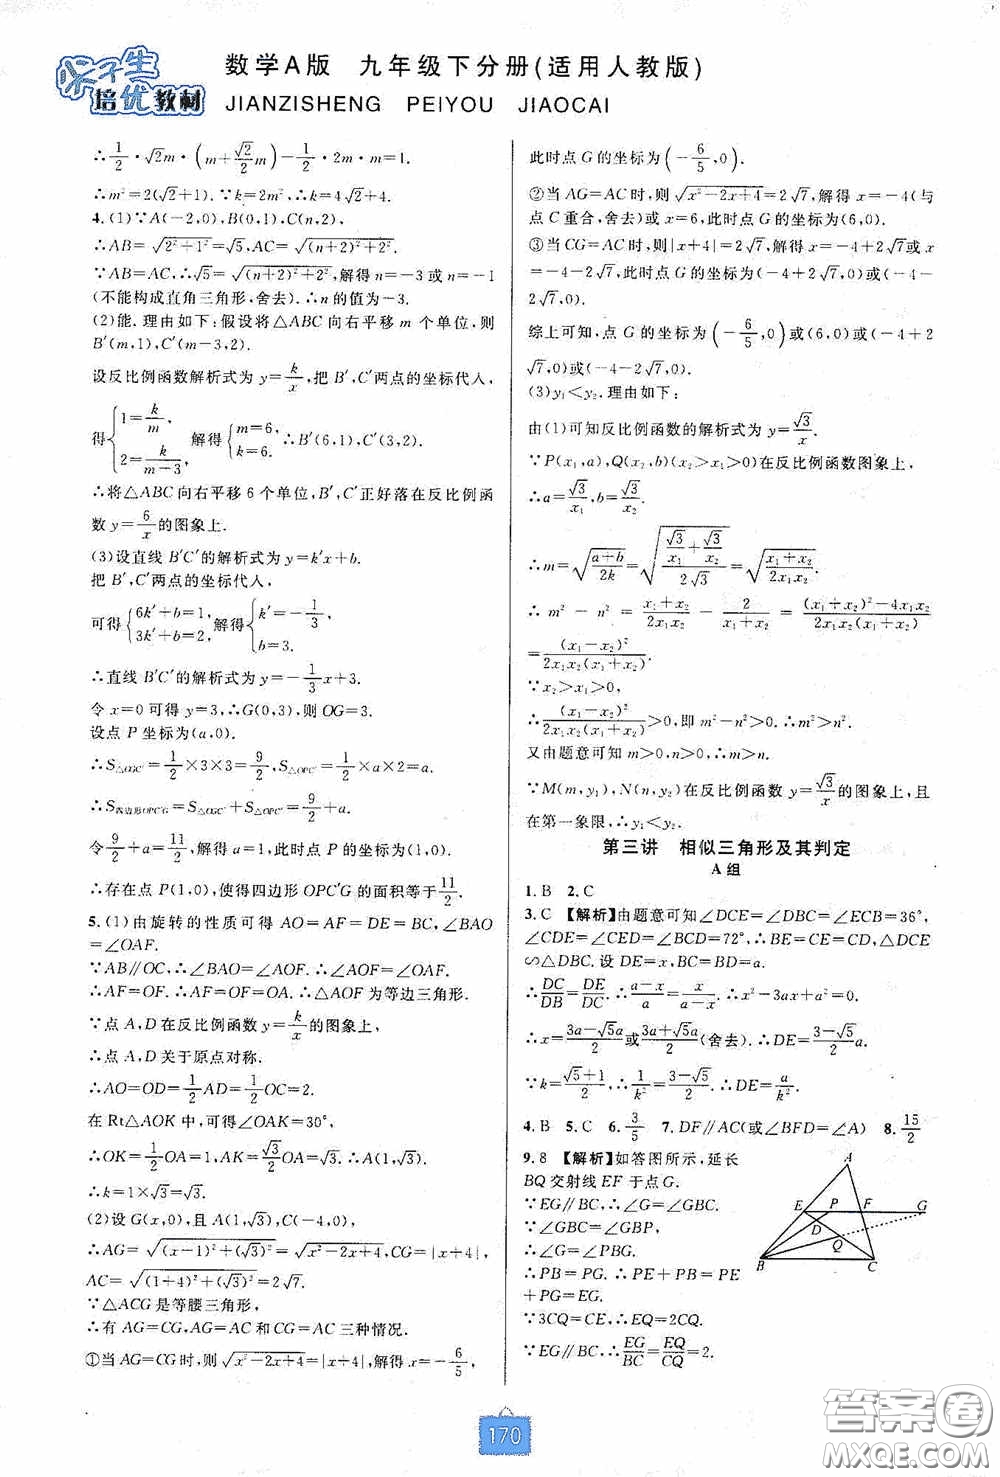 尖子生
培优教材
数学A版 九年级下分册(适用人教版)
JIANZISHENG PEIYOU JIAOCAI
∴1/2·√2m·(m+√2/2m)−1/2·2m·m=1.
∴m²=2(√2+1).∵k=2m²,∴k=4√2+4.
4.(1)∵A(−2,0),B(0,1),C(n,2),
∴AB=√(2²+1²)=√5,AC=√((n+2)²+2²).
∵AB=AC,∴√5=√((n+2)²+2²),解得n=−3或n=−1
(不能构成直角三角形,舍去).∴n的值为−3.
(2)能.理由如下:假设将△ABC向右平移m个单位,则
B′(m,1),C′(m−3,2).
设反比例函数解析式为y=k/x,把B′,C′两点的坐标代入,
得{1=k/m, 2=k/(m−3) 解得{m=6, k=6. ∴B′(6,1),C′(3,2).
∴将△ABC向右平移6个单位,B′,C′正好落在反比例函
数y=6/x的图象上.
(3)设直线B′C′的解析式为y=k′x+b.
把B′,C′两点的坐标代入,
可得{6k′+b=1, 3k′+b=2, 解得{k′=−1/3, b=3.
∴直线B′C′的解析式为y=−1/3x+3.
令x=0可得y=3,∴G(0,3),则OG=3.
设点P坐标为(a,0).
∴S△OGC′=1/2×3×3=9/2,S△OPC′=1/2×a×2=a.
∴S四边形OPC′G=S△OGC′+S△OPC′=9/2+a.
令9/2+a=11/2,解得a=1,此时点P的坐标为(1,0).
∴存在点P(1,0),使得四边形OPC′G的面积等于11/2.
5.(1)由旋转的性质可得AO=AF=DE=BC,∠BAO
=∠OAF.
∵AB∥OC,∴∠BAO=∠AOF.∴∠OAF=∠AOF.
∴AF=OF.∴AF=OF=OA.∴△AOF为等边三角形.
∵点A,D在反比例函数y=k/x的图象上,
∴点A,D关于原点对称.
∴AO=OD=1/2AD=1/2OC=2.
在Rt△AOK中,可得∠OAK=30°,
∴OK=1/2OA=1,AK=√3/2OA=√3.∴A(1,√3).
∴k=1×√3=√3.
(2)设G(x,0),且A(1,√3),C(−4,0),
∴AG=√((x−1)²+(√3)²)=√(x²−2x+4),CG=|x+4|,
AC=√((1+4)²+(√3)²)=2√7.
∵△ACG是等腰三角形,
∴有AG=CG,AG=AC和CG=AC三种情况.
①当AG=CG时,则√(x²−2x+4)=|x+4|,解得x=−6/5,
此时点G的坐标为(−6/5,0).
②当AG=AC时,则√(x²−2x+4)=2√7,解得x=−4(与
点C重合,舍去)或x=6,此时点G的坐标为(6,0).
③当CG=AC时,则|x+4|=2√7,解得x=−4+2√7或x
=−4−2√7,此时点G的坐标为(−4+2√7,0)或(−4−
2√7,0).
综上可知,点G的坐标为(−6/5,0)或(6,0)或(−4+2
√7,0)或(−4−2√7,0).
(3)y₁<y₂.理由如下:
由(1)可知反比例函数的解析式为y=√3/x.
∵P(x₁,a),Q(x₂,b)(x₂>x₁>0)在反比例函数图象上,
∴a=√3/x₁,b=√3/x₂.
∴m=√((a+b)/2k)=√((√3/x₁+√3/x₂)/2√3)=√((x₁+x₂)/2x₁x₂).
∴m²−n²=(x₁+x₂)/2x₁x₂−2/(x₁+x₂)=((x₁+x₂)²−4x₁x₂)/2x₁x₂(x₁+x₂)
=(x₁−x₂)²/2x₁x₂(x₁+x₂).
∵x₂>x₁>0,
∴(x₁−x₂)²/2x₁x₂(x₁+x₂)>0,即m²−n²>0.∴m²>n².
又由题意可知m>0,n>0,∴m>n.
∵M(m,y₁),N(n,y₂)在反比例函数y=√3/x的图象上,且
在第一象限,∴y₁<y₂.
第三讲 相似三角形及其判定
A组
1.B 2.C
3.C 【解析】由题意可知∠DCE=∠DBC=∠ECB=36°,
∠CDE=∠CED=∠BCD=72°,∴BE=CE=CD,△DCE
∽△DBC.设DE=x,BC=BD=a.
∴DC/DB=DE/DC.∴(a−x)/a=x/(a−x).∴x²−3ax+a²=0.
∴x=(3a−√5a)/2或(3a+√5a)/2(舍去).∴DE=(3−√5)/2a.
∵k=(√5+1)/2,∴1/k²=(3−√5)/2.∴DE=a/k².
4.B 5.C 6.3/5 7.DF∥AC(或∠BFD=∠A) 8.15/2
9.8 【解析】如答图所示,延长
BQ交射线EF于点G.
∵EG∥BC,∴∠G=∠GBC.
∵∠GBC=∠GBP,
∴∠G=∠PBG.
∴PB=PG.∴PE+PB=PE
+PG=EG.
∵3CQ=CE,∴EQ=2CQ.
∵EG∥BC,∴EG/BC=EQ/CQ=2.
A
E P F G
D
Q
B C
170
答案圈
MXQE.COM